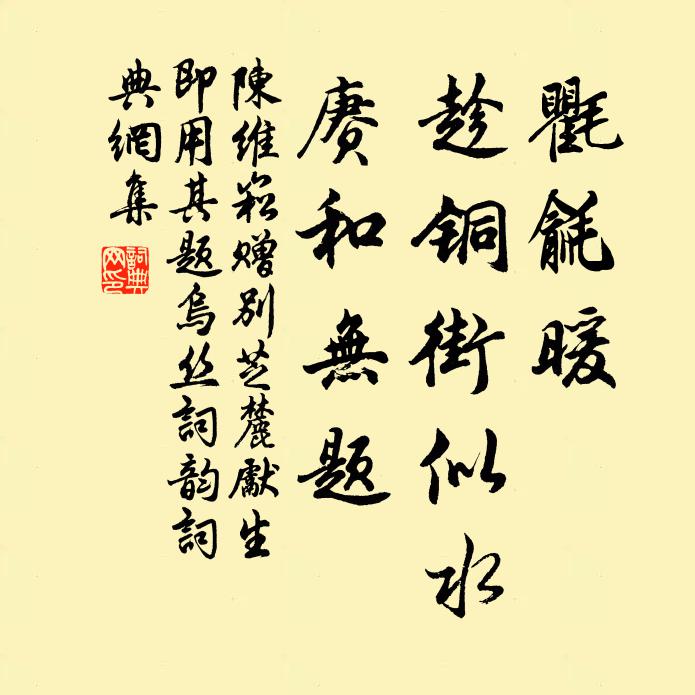 氍毹暖
趁铜街似水
赓和無题
陳維崧贈別芝麓獻生
即用其题烏丝詞韵詞
典網集
詞典
网印